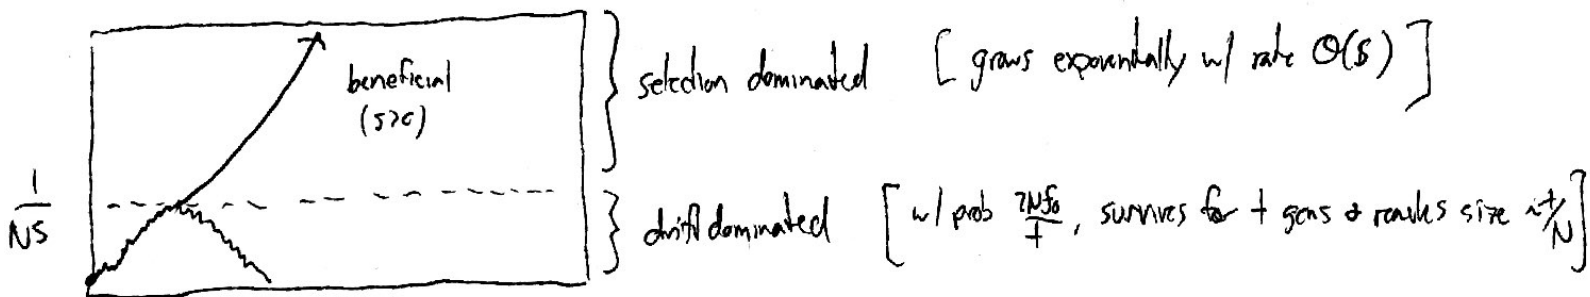 beneficial
(s>0)
} selection dominated [grows exponentially w/ rate O(s)]
1/NS
} drift dominated [w/ prob 2Nf₀/t, survives for t gens & reaches size ~t/N]